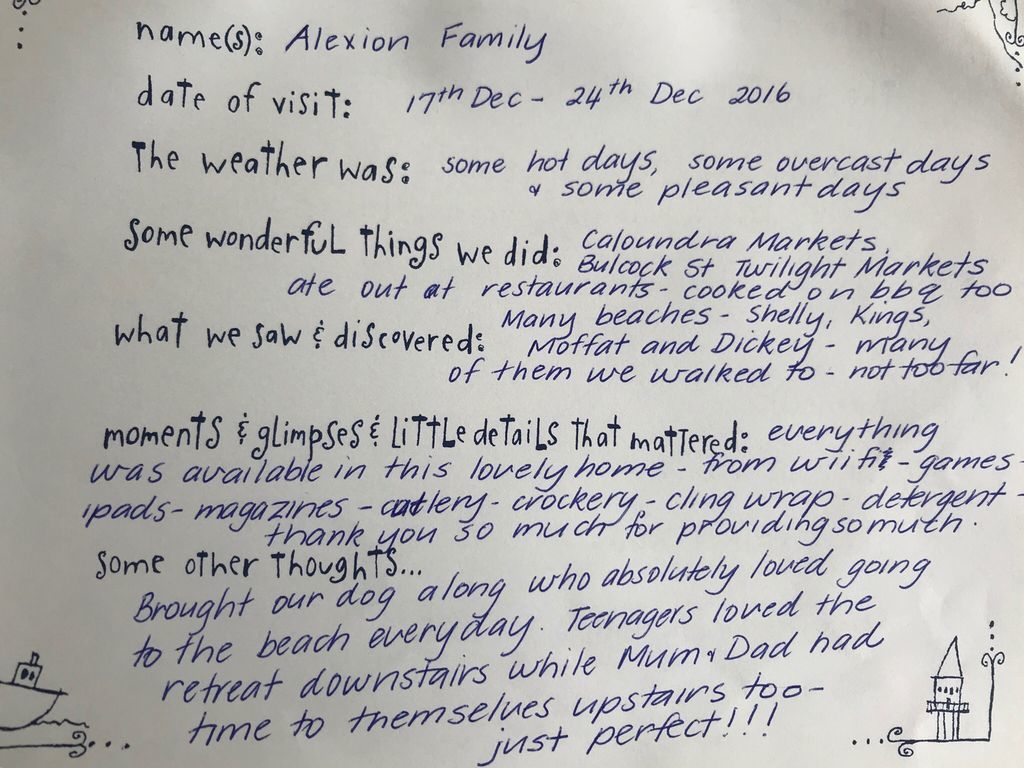 name(s): Alexion Family
date of visit: 17th Dec - 24th Dec 2016
The weather was: some hot days, some overcast days
& some pleasant days
some wonderful things we did: Caloundra Markets,
Bulcock St Twilight Markets
ate out at restaurants - cooked on bbq too
what we saw & discovered: Many beaches - Shelly, Kings,
Moffat and Dickey - many
of them we walked to - not too far!
moments & glimpses & little details that mattered: everything
was available in this lovely home - from wii fit - games -
ipads - magazines - cutlery - crockery - cling wrap - detergent -
thank you so much for providing so much.
some other thoughts...
Brought our dog along who absolutely loved going
to the beach everyday. Teenagers loved the
retreat downstairs while Mum & Dad had
time to themselves upstairs too -
just perfect!!!